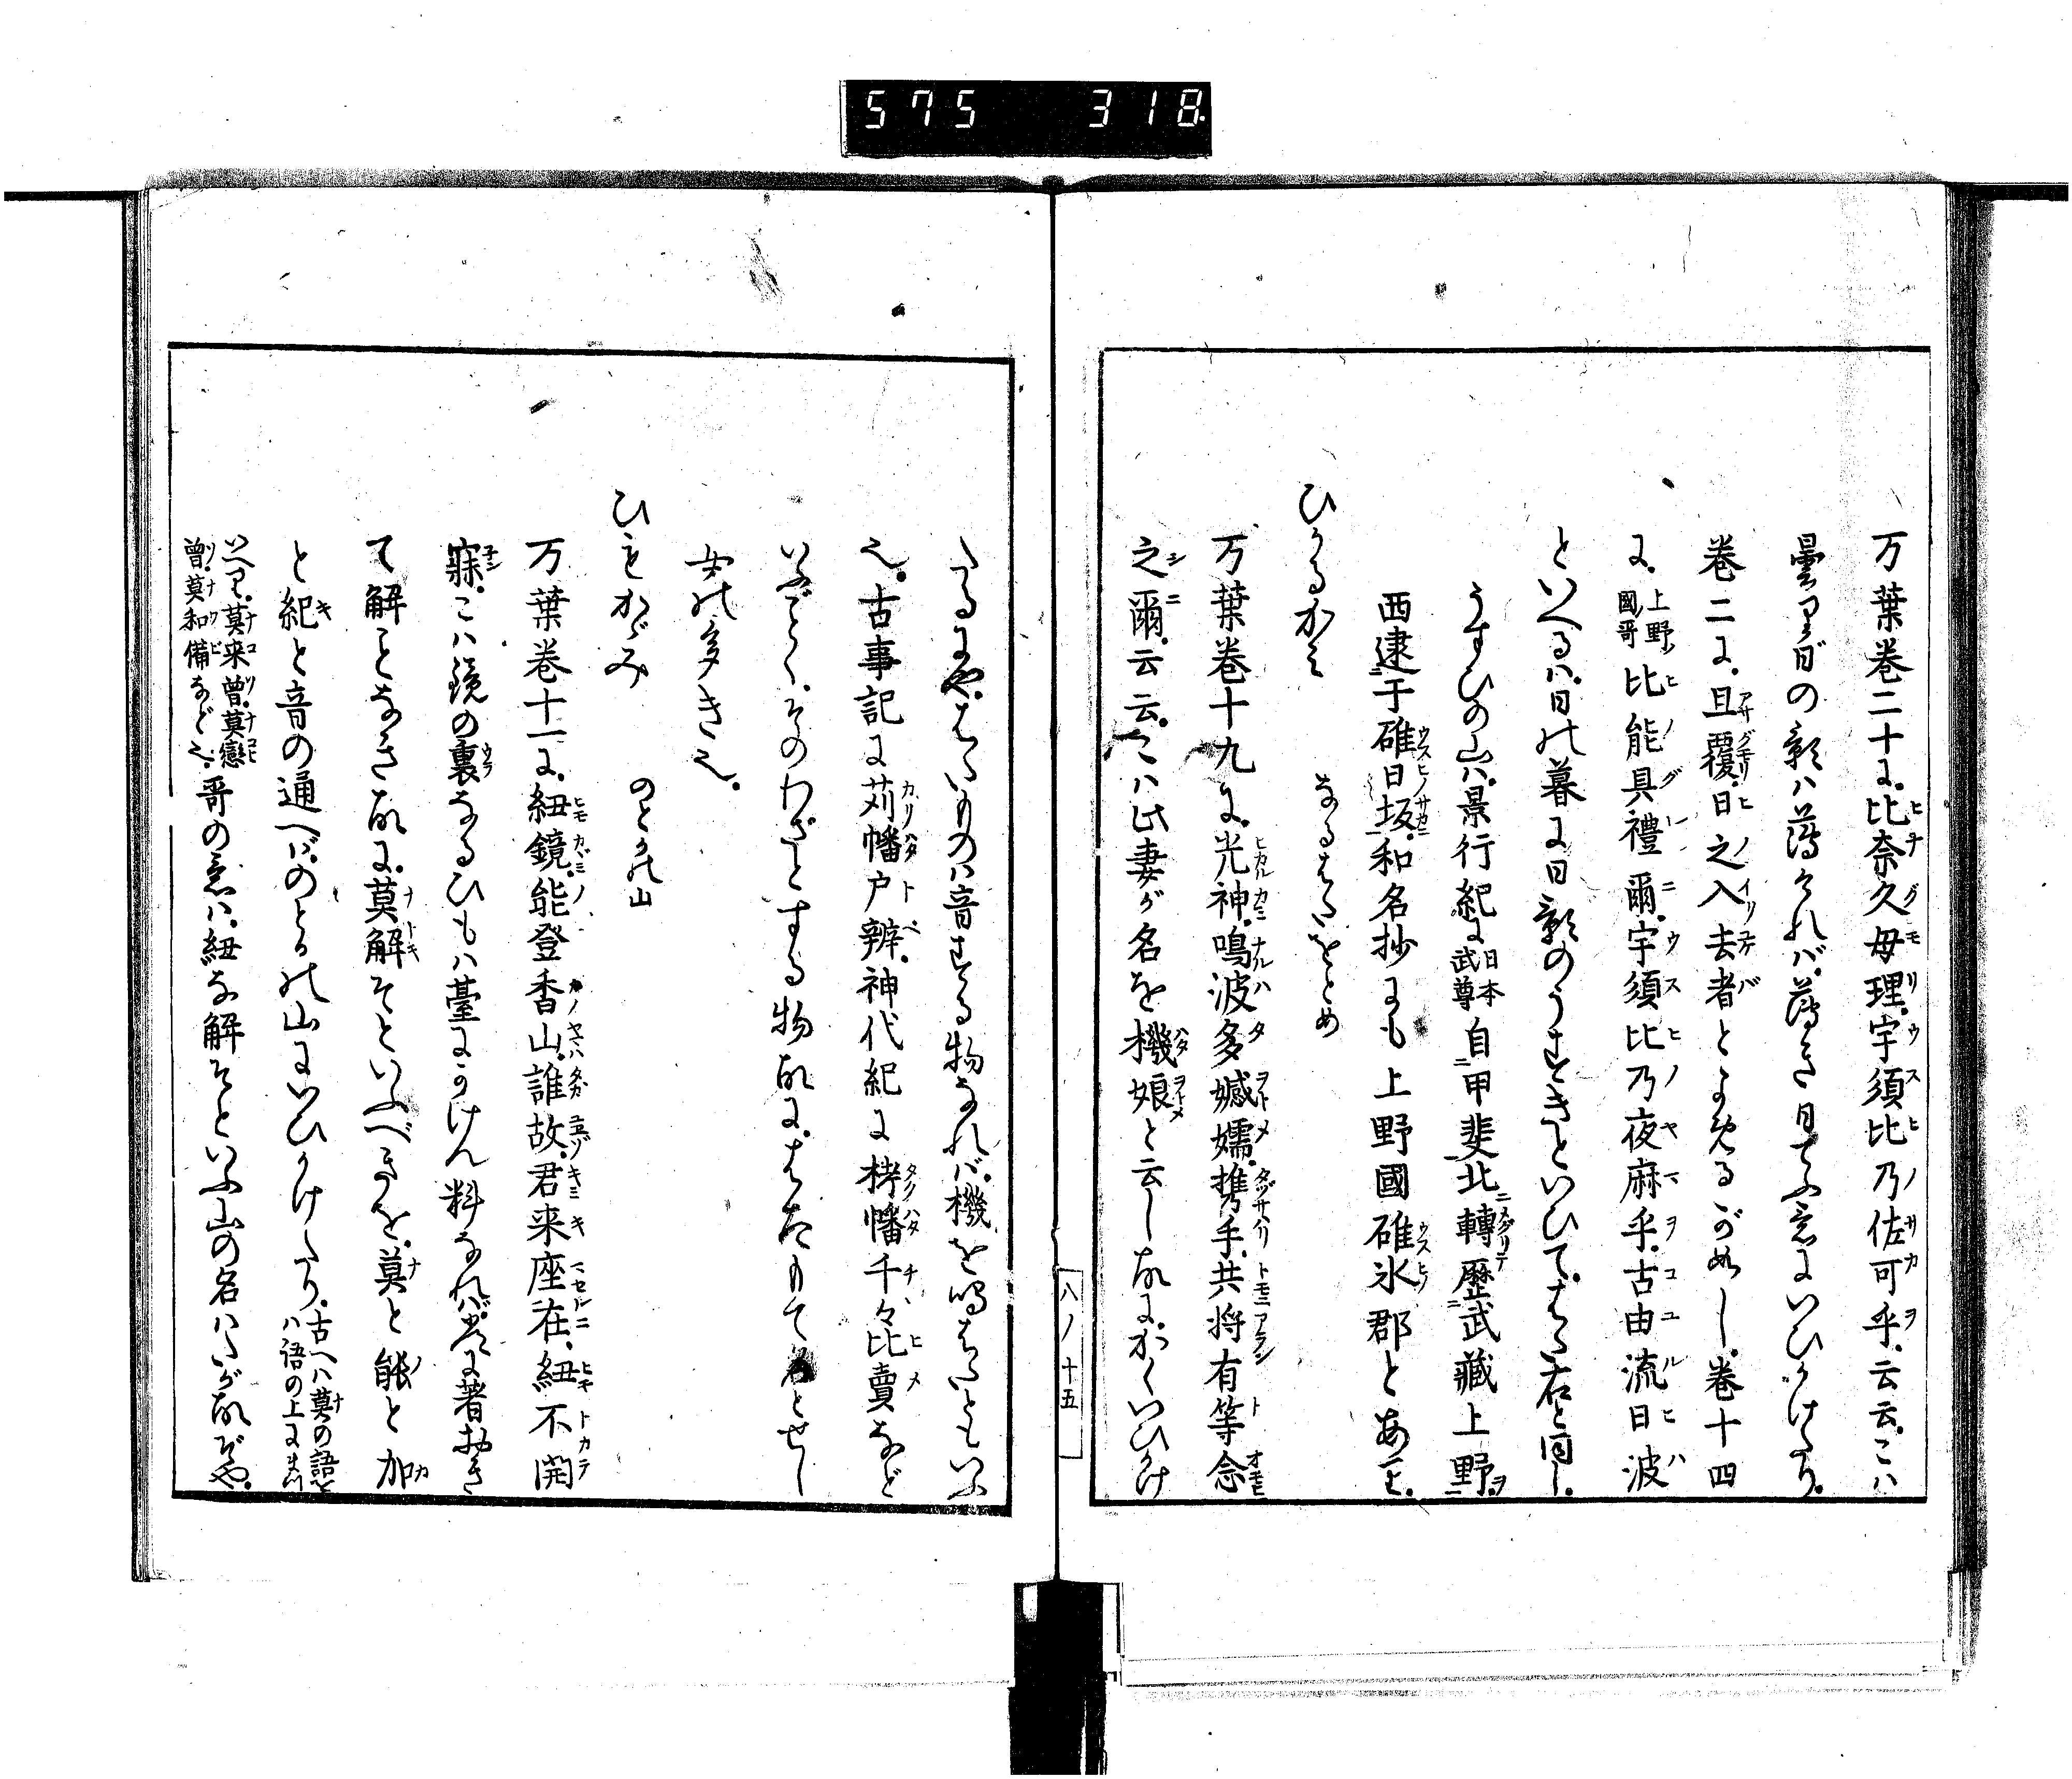 575 318
万葉巻二十に。比奈久毛理。宇須比乃佐可乎。云云。こハ
曇り日の影ハ薄けれバ。薄き日てふ意にいひかけたり。
巻二に。旦覆。日之入去者とよめるがごとし。巻十四
に。上野國哥比能具禮爾。宇須比乃夜麻乎。古由流日波
といへるハ。日の暮に日影のうすきといひて。はら右と同し。
うすひの山ハ。景行紀に日本武尊自甲斐北轉歴武藏上野。
西逮于碓日坂。和名抄にも上野國碓氷郡とあり。
ひかるかみ なるはたをとめ
万葉巻十九に。光神。鳴波多嬾嬬。携手。共将有等念
之爾。云云。こハ此妻が名を機娘と云し故に。かくいひかけ
たるにや。はたものハ音する物なれバ。機を鳴はたともいふ
也。古事記に苅幡戸辨。神代紀に栲幡千々比賣など
いふごとく。そのわざとする物故に。はたもて名とせし
女の多き也。
ひもかゞみ のとかの山
万葉巻十一に。紐鏡。能登香山。誰故。君来座在。紐不開
寐。こハ鏡の裏なるひもハ臺にかけん料なれバ。常に著おき
て解ことなき故に。莫解そといふべきを。莫と能と加
と紀と音の通へバ。のとかの山にいひかけたり。古へハ莫の語をハ語の上にまづ
いへり。莫来曾。莫戀曾。莫和備など也。哥の意ハ。紐な解そといふ山の名ハたが故ぞや。
八ノ十五